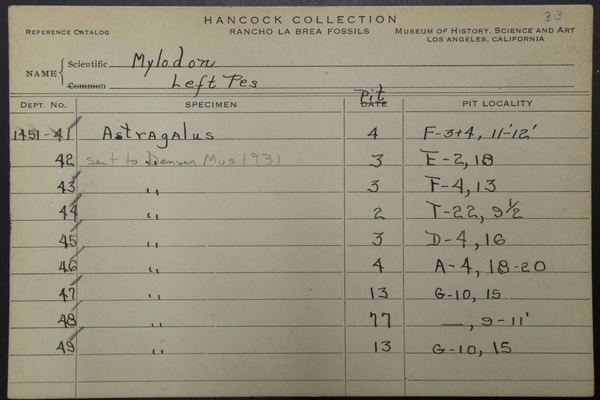 HANCOCK COLLECTION 33
REFERENCE CATALOG RANCHO LA BREA FOSSILS MUSEUM OF HISTORY, SCIENCE AND ART
LOS ANGELES, CALIFORNIA
NAME Scientific Mylodon
Common Left Pes
Pit
DEPT. NO. SPECIMEN DATE PIT LOCALITY
1451-41 Astragalus 4 F-3+4, 11'-12'
42 sent to Denver Mus 1931 3 E-2, 18
43 " 3 F-4, 13
44 " 2 T-22, 9½
45 " 3 D-4, 16
46 " 4 A-4, 18-20
47 " 13 G-10, 15
48 " 77 —, 9-11'
49 " 13 G-10, 15